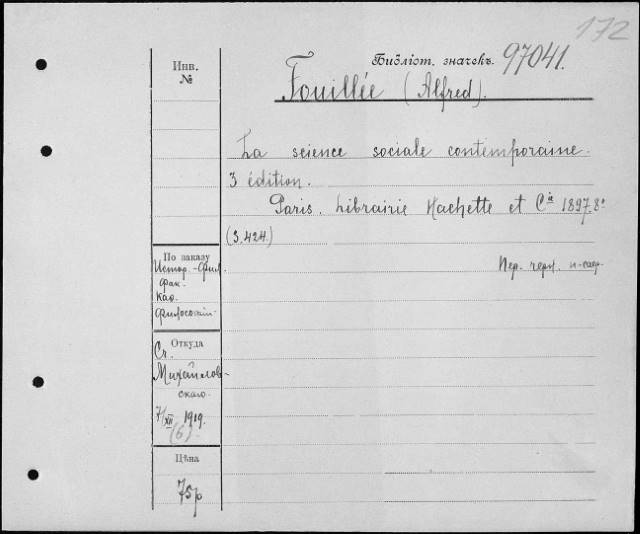 172
Библіот. значекъ. 97041.
Инв.
№
Fouillée (Alfred).
La science sociale contemporaine.
3 édition.
Paris. Librairie Hachette et Cie 1897. 8°
(3.424.)
По заказу
Истор.-Фил.
Фак.
Каѳ.
Философіи
Пер. черн. п-сафр.
Откуда
Ст.
Михайлов-
скаго
7/XII 1919.
(6)
Цѣна
75р